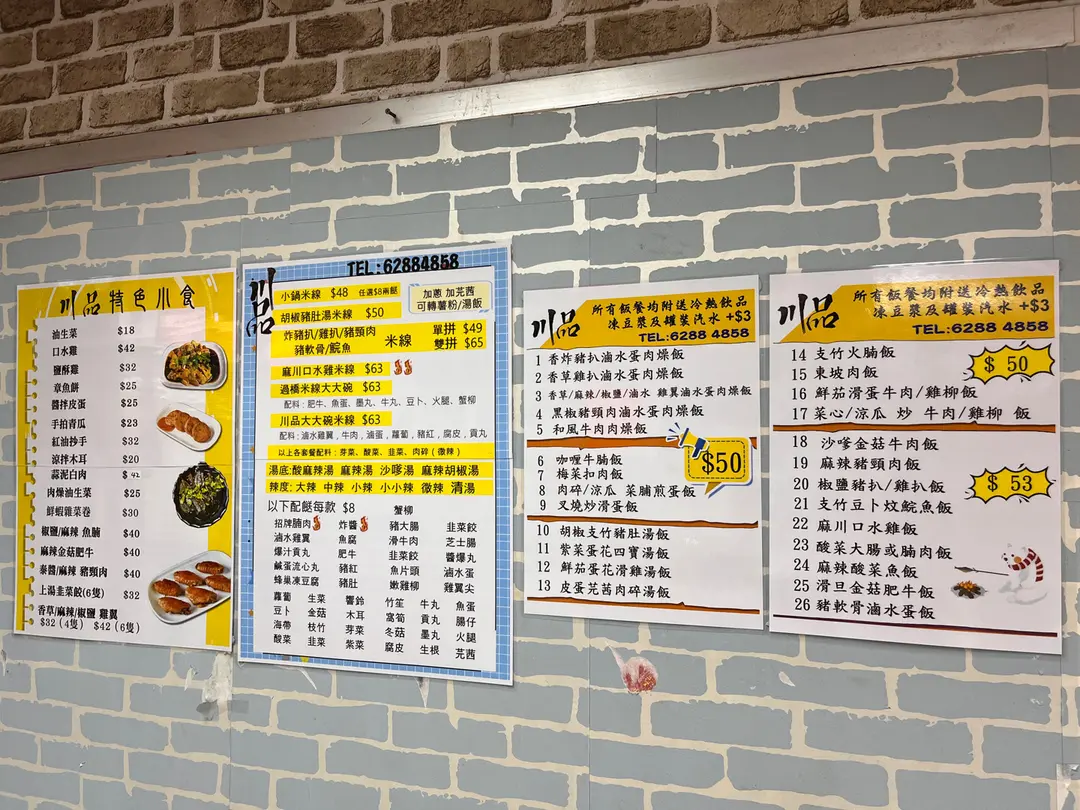 川品 特色小食
油生菜 $18
口水雞 $42
鹽酥雞 $32
章魚餅 $25
醬拌皮蛋 $25
手拍青瓜 $23
紅油抄手 $32
涼拌木耳 $20
蒜泥白肉 $42
肉燥油生菜 $25
鮮蝦雜菜卷 $30
椒鹽/麻辣 魚腩 $40
麻辣金菇肥牛 $40
泰醬/麻辣 豬頸肉 $40
上湯韭菜餃(6隻) $32
香草/麻辣/椒鹽 雞翼
$32 (4隻) $42 (6隻)
TEL:62884858
川品
小鍋米線 $48 任選$8兩餸
加蔥 加芫茜
可轉薯粉/湯飯
胡椒豬肚湯米線 $50
炸豬扒/雞扒/豬頸肉
豬軟骨/鯇魚
米線
單拼 $49
雙拼 $65
麻川口水雞米線 $63
過橋米線大大碗 $63
配料：肥牛、魚蛋、墨丸、牛丸、豆卜、火腿、蟹柳
川品大大碗米線 $63
配料:滷水雞翼,牛肉,滷蛋,蘿蔔,豬紅,腐皮,貢丸
以上各套餐配料：芽菜、酸菜、韭菜、肉碎（微辣）
湯底:酸麻辣湯 麻辣湯 沙嗲湯 麻辣胡椒湯
辣度:大辣 中辣 小辣 小小辣 微辣 清湯
以下配餸每款 $8 蟹柳
招牌腩肉 炸醬 豬大腸 韭菜餃
滷水雞翼 魚腐 滑牛肉 芝士腸
爆汁貢丸 肥牛 韭菜餃 醬爆丸
鹹蛋流心丸 豬紅 魚片頭 滷水蛋
蜂巢凍豆腐 豬肚 嫩雞柳 雞翼尖
蘿蔔 生菜 響鈴 竹笙 牛丸 魚蛋
豆卜 金菇 木耳 窩筍 貢丸 腸仔
海帶 枝竹 芽菜 冬菇 墨丸 火腿
酸菜 韭菜 紫菜 腐皮 生根 芫茜
川品
所有飯餐均附送冷熱飲品
凍豆漿及罐裝汽水 +$3
TEL:6288 4858
1 香炸豬扒滷水蛋肉燥飯
2 香草雞扒滷水蛋肉燥飯
3 香草/麻辣/椒鹽/滷水 雞翼滷水蛋肉燥飯
4 黑椒豬頸肉滷水蛋肉燥飯
5 和風牛肉肉燥飯
6 咖喱牛腩飯
7 梅菜扣肉飯
8 肉碎/涼瓜 菜脯煎蛋飯
9 叉燒炒滑蛋飯
$50
10 胡椒支竹豬肚湯飯
11 紫菜蛋花四寶湯飯
12 鮮茄蛋花滑雞湯飯
13 皮蛋芫茜肉碎湯飯
川品
所有飯餐均附送冷熱飲品
凍豆漿及罐裝汽水 +$3
TEL:6288 4858
14 支竹火腩飯
15 東坡肉飯
16 鮮茄滑蛋牛肉/雞柳飯
17 菜心/涼瓜 炒 牛肉/雞柳 飯
$50
18 沙嗲金菇牛肉飯
19 麻辣豬頸肉飯
20 椒鹽豬扒/雞扒飯
21 支竹豆卜炆鯇魚飯
22 麻川口水雞飯
23 酸菜大腸或腩肉飯
24 麻辣酸菜魚飯
25 滑旦金菇肥牛飯
26 豬軟骨滷水蛋飯
$53